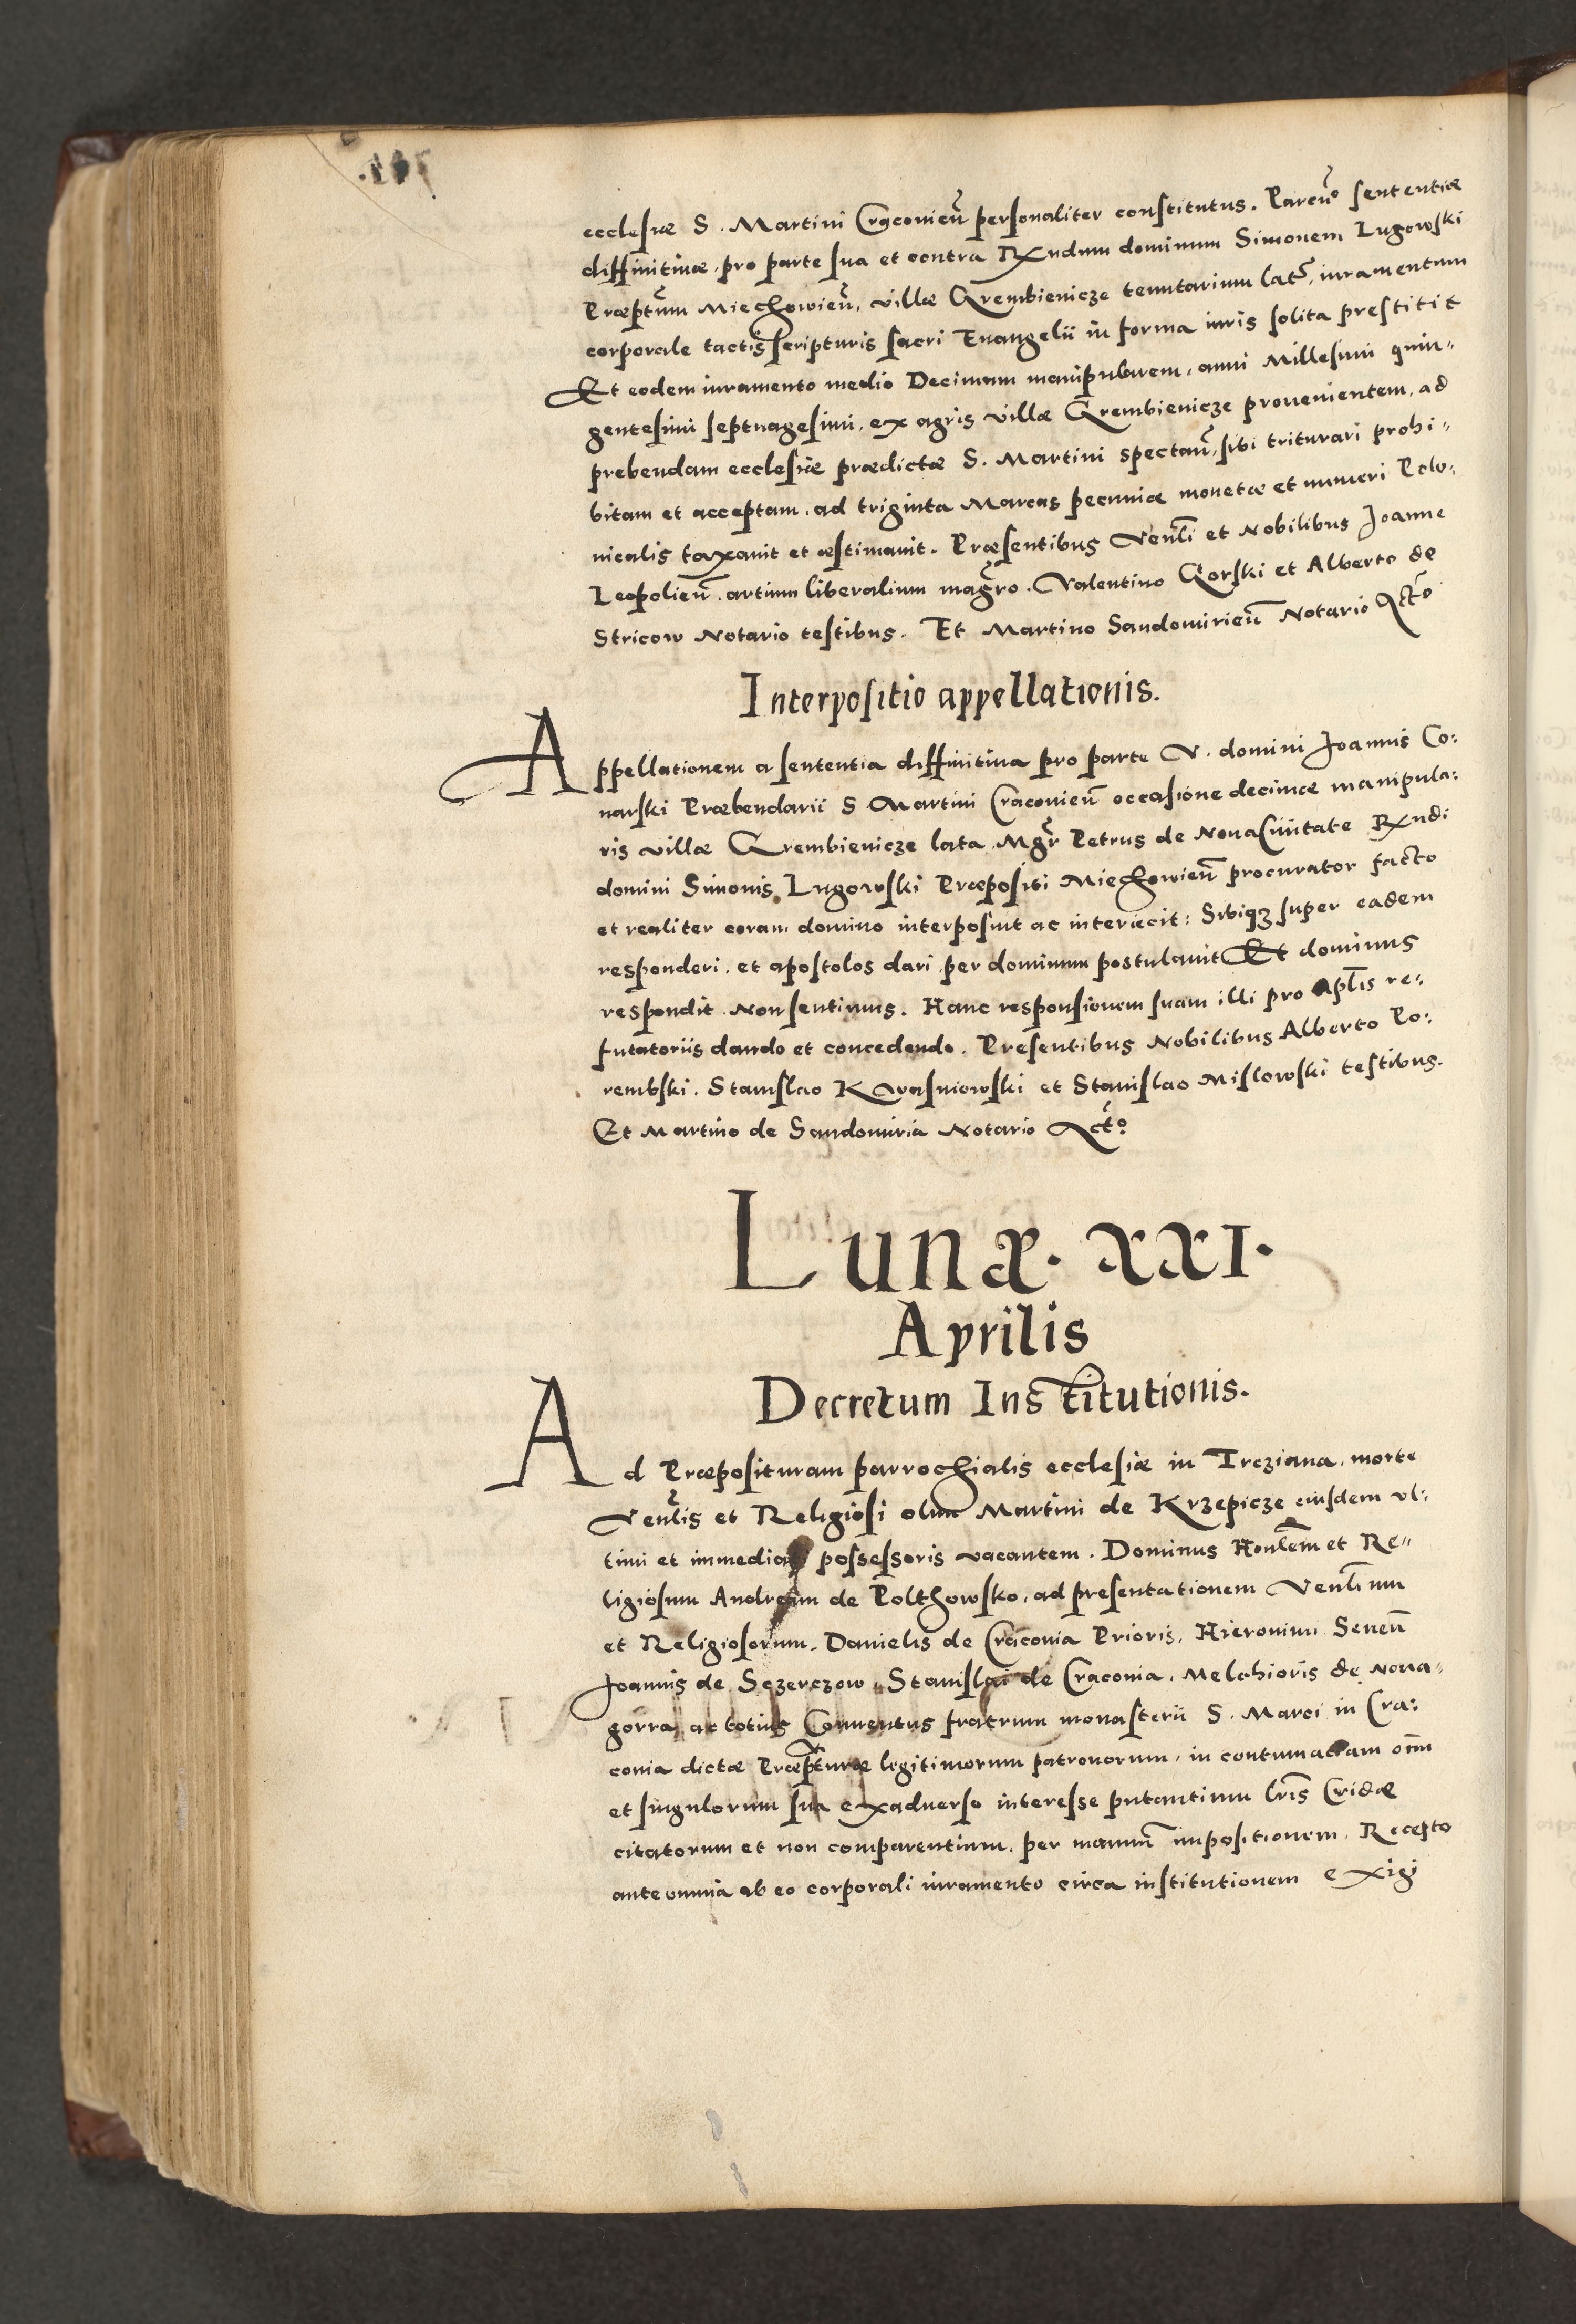 ecclesiæ S. Martini Cracovien̄ personaliter constitutus. Paren̄o sententiæ
diffinitivæ, pro parte sua et contra Rxndum dominum Simonem Lugowski
Præptum Miechowien̄, villæ Grembienicze tenutarium lat̄, iuramentum
corporale tactis scripturis sacri Euangelii in forma iuris solita prestitit
Et eodem iuramento medio Decimam manipularem, anni Millesimi quin-
gentesimi septuagesimi, ex agris villæ Grembienicze prouenientem, ad
prebendam ecclesiæ prædictæ S. Martini spectan̄, sibi triturari prohi-
bitam et acceptam, ad triginta Marcas pecuniæ monetæ et numeri Polo-
nicalis taxauit et æstimauit. Præsentibus Venli et Nobilibus Joanne
Leopolien̄. artium liberalium magr̄o. Valentino Gorski et Alberto de
Stricow Notario testibus. Et Martino Sandomirien̄ Notario Actō
Interpositio appellationis.
Appellationem a sententia diffinitiua pro parte V. domini Joannis Co-
narski Præbendarii S Martini Cracouien̄ occasione decimæ manipula-
ris villæ Grembienicze lata Mgr̄ Petrus de Noua Ciuitate Rxndi
domini Simonis Lugowski Præpositi Miechowien̄ procurator facto
et realiter coram domino interposuit ac interiecit: Sibiqz super eadem
responderi, et apostolos dari per dominum postulauit Et dominus
respondit Non sentimus. Hanc responsionem suam illi pro Apl̄is re-
futatoriis dando et concedendo. Presentibus Nobilibus Alberto Po-
rembski. Stanislao Kwasniowski et Stanislao Mislowski testibus.
Et Martino de Sandomiria Notario Act̄o
Lunæ. XXI.
Aprilis
Decretum Institutionis.
Ad Præposituram parrochialis ecclesiæ in Trcziana, morte
Venlis et Religiosi olim Martini de Krzepicze eiusdem vl-
timi et immediati possessoris vacantem. Dominus Honlem et Re-
ligiosum Andream de Polthowsko, ad presentationem Venlium
et Religiosorum. Danielis de Craconia Prioris, Hieronimi Senen̄
Joannis de Sczerczow, Stanislai de Craconia, Melchioris de Noua-
gorra, ac totius Conuentus fratrum monasterii S. Marci in Cra-
conia dictæ Præpturæ legitimorum patronorum, in contumaciam om̄
et singulorum sua exaduerso interesse putantium lr̄is Cridæ
citatorum et non comparentium, per manuū impositionem, Recepto
ante omnia ab eo corporali iuramento circa institutionem exigi